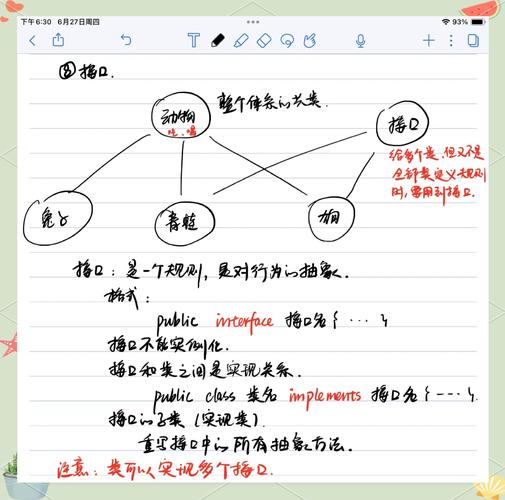 下午6:30 6月27日周四
93%
⑧接口.
动物
吃、喝
整个体系的父类.
接口
给多个类,但又不是
全部类定义规则
时,需用到接口.
兔子
青蛙
狗
接口:是一个规则,是对行为的抽象.
格式:
public interface 接口名{ ··· }
接口不能实例化.
接口和类之间是实现关系.
public class 类名 implements 接口名{---}.
接口的子类(实现类).
重写接口中的所有抽象方法.
注意:类可以实现多个接口.